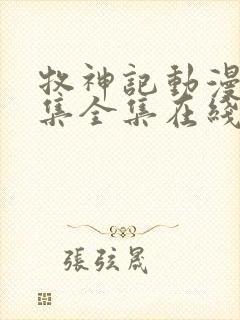 牧神記動漫
集全集在綫
張弦晟